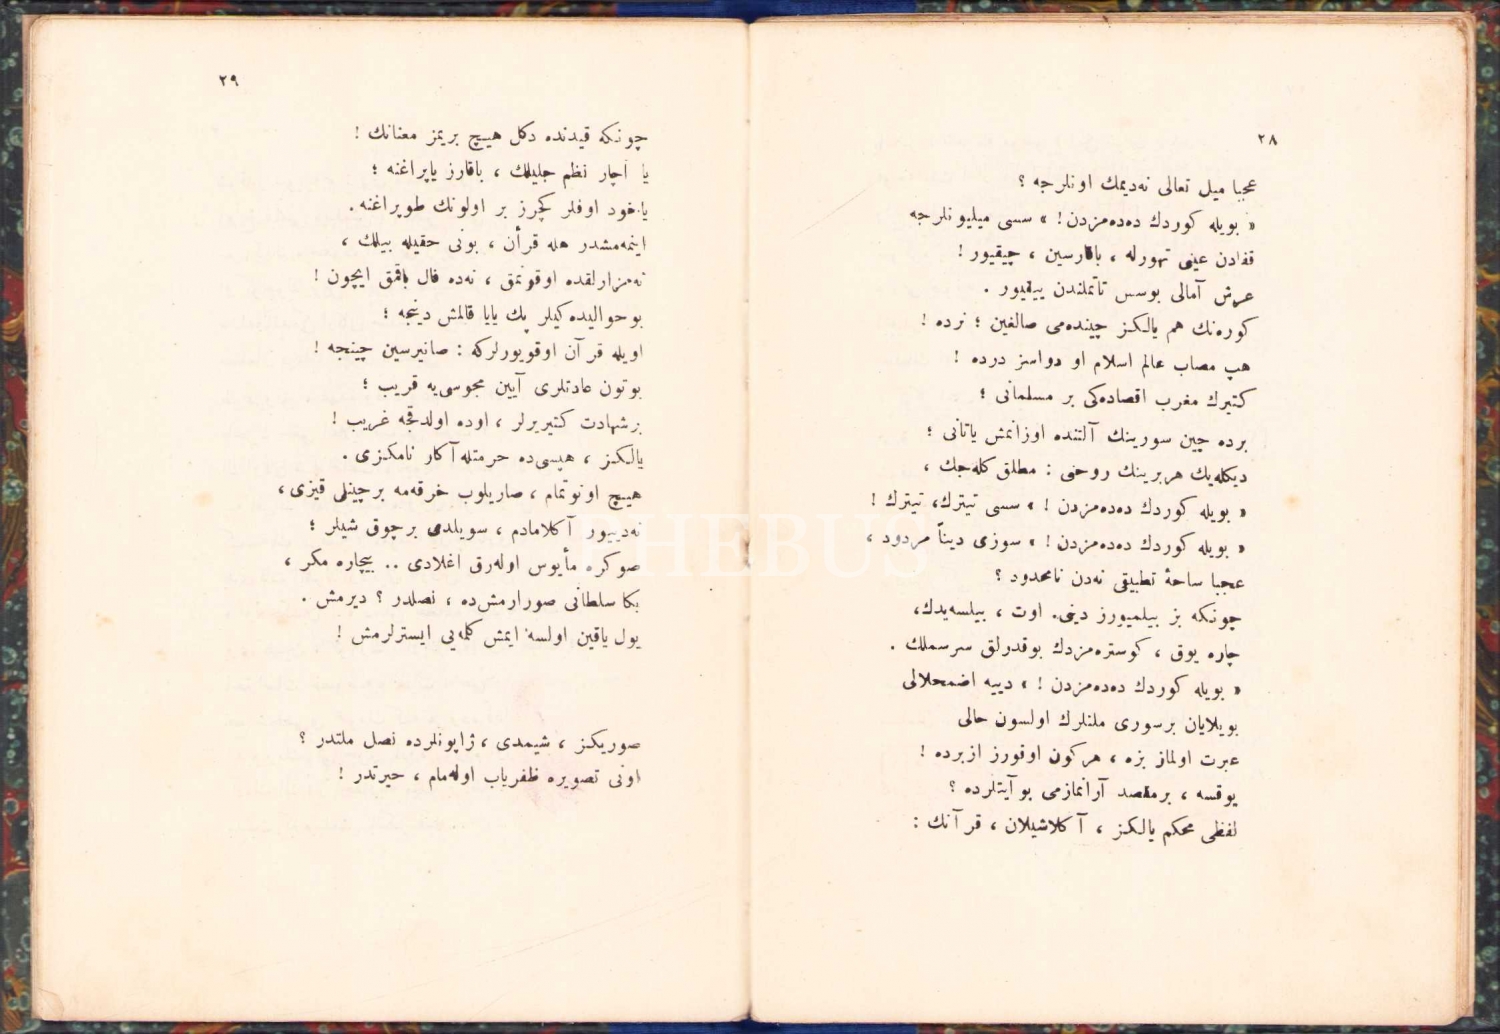 ٢٨
عجبا ميل تعالى نه‌ديمك اونلرجه ؟
« بويله كوردك دده‌مزدن ! » سسى ميليونلرجه
قفادن عينى تهورله ، باقارسين ، چيقيور !
عرش آمالى بوسس تاتملندن ييقييور .
كوره‌نك هم يالكز چينده‌مى صالغين ؛ نرده !
هپ مصاب عالم اسلام او دواسز درده !
كتيرك مغرب اقصاده‌كى بر مسلمانى ؛
برده چين سورينك آلتنده اوزانمش ياتانى ؛
ديكله‌يك هربرينك روحنى : مطلق كله‌جك ،
« بويله كوردك دده‌مزدن ! » سسى تيترك، تيترك !
« بويله كوردك دده‌مزدن ! » سوزى ديناً مردود ،
عجبا ساحۀ تطبيقى نه‌دن نامحدود ؟
چونكه بز بيلميورز دينى. اوت ، بيلسه‌يدك،
چاره يوق ، كوستره‌مزدك بوقدرلق سرسملك .
« بويله كوردك دده‌مزدن ! » دييه اضمحلالى
بويلايان برسورى ملتلرك اولسون حالى
عبرت اولماز بزه ، هركون اوقورز ازبرده !
يوقسه ، برمقصد آرانمازمى بو آيتلرده ؟
لفظى محكم يالكز ، آكلاشيلان ، قرآنك :
٢٩
چونكه قيدنده دكل هيچ بريمز معنانك !
يا آچار نظم جليلك ، باقارز ياپراغنه ؛
ياخود اوفلر كچرز بر اولونك طوپراغنه .
اينمه‌مشدر هله قرأن ، بونى حقيله بيلك ،
نه‌مزارلقده اوقونمق ، نه‌ده فال باقمق ايچون !
بوحواليده‌كيلر پك يايا قالمش دينجه ؛
اويله قرآن اوقويورلركه : صانيرسين چينجه !
بوتون عادتلرى آيين مجوسى‌يه قريب ؛
برشهادت كتيريرلر ، اوده اولدقجه غريب !
يالكز ، هپسى‌ده حرمتله آكار نامكزى .
هيچ اونوتمام ، صاريلوب خرقه‌مه برچينلى قيزى ،
نه‌دييور آكلامادم ، سويلدى برچوق شيلر ؛
صوكره مأيوس اوله‌رق اغلادى .. بيچاره مكر ،
بكا سلطانى صورارمش‌ده ، نصلدر ؟ ديرمش .
يول ياقين اولسه ايمش كلمه‌يى ايسترلرمش !
صوريكز ، شيمدى ، ژاپونلرده نصل ملتدر ؟
اونى تصويره ظفرياب اوله‌مام ، حيرتدر !
PHEBUS